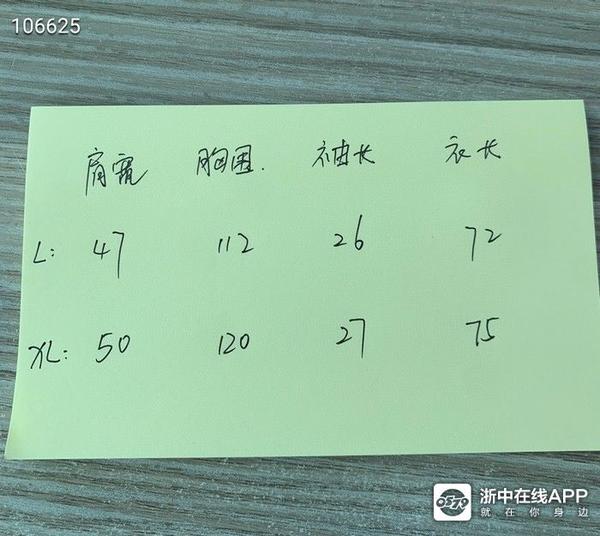 106625
肩宽 胸围. 袖长 衣长
L: 47 112 26 72
XL: 50 120 27 75
0579 浙中在线APP
就在你身边